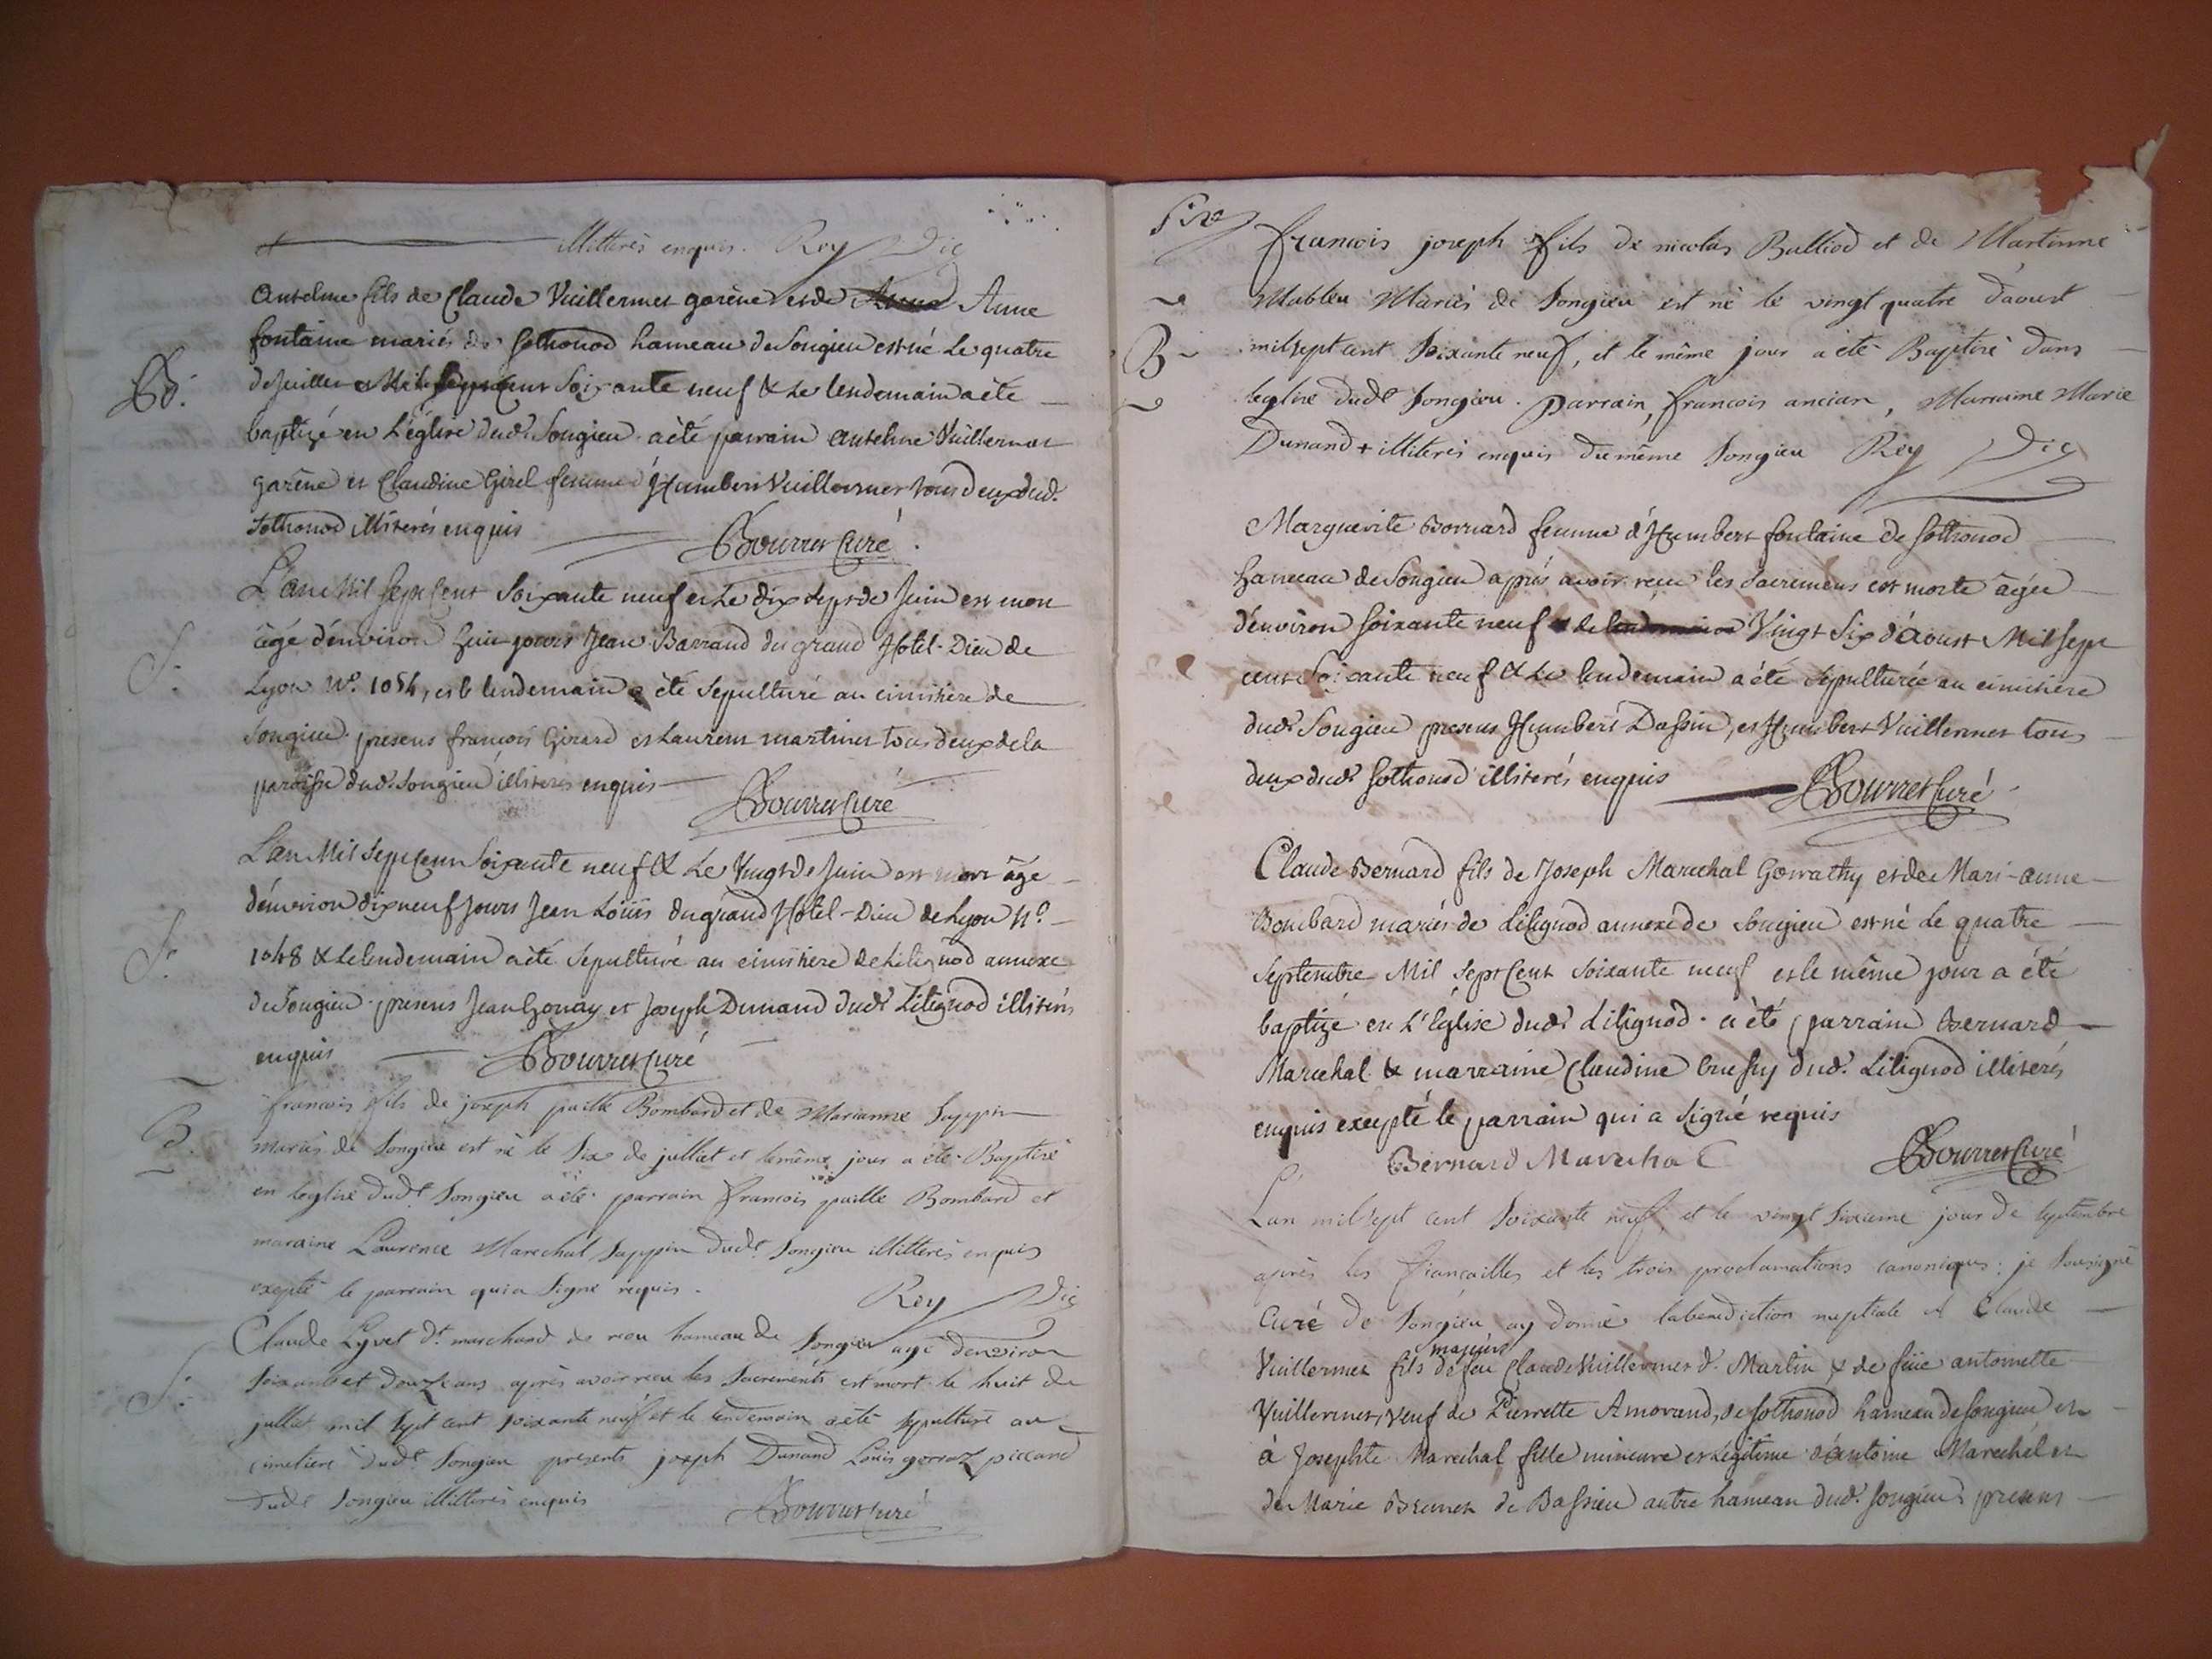 + illitterés enquis. Rey Vic
Anselme fils de Claude Vuillermet garène et de Anne
fontaine mariés de Sothonod hameau de Songieu est né le quatre
de Juillet Mil Sept Cent Soixante neuf & Le lendemain a été
B.
baptizé en L'église dud. Songieu. a été parrain anselme Vuillermet
garène et Claudine Girel femme d'Humbert Vuillermet tous deux dud.
Sothonod illiterés enquis Bourret Curé.
L'an Mil Sept Cent Soixante neuf et Le dix sept de Juin est mort
âgé d'environ huit jours Jean Barraud du grand Hotel-Dieu de
S.
Lyon N.º 1054, et le lendemain a été Sepulturé au cimitière de
Songieu. presens françois Girard et Laurent martinet tous deux de la
paroisse dud. Songieu illiterés enquis Bourret Curé
L'an Mil Sept Cent Soixante neuf & Le Vingt de Juin est mort âgé
d'environ dix neuf Jours Jean Loüis du grand Hotel-Dieu de Lyon N.º
S.
1048 & Le lendemain a été Sepulturé au cimitière de Lilignod annexe
de Songieu. presens Jean Gonay et Joseph Dunand dud. Lilignod illiterés
enquis Bourret Curé
françois fils de joseph paille Bombard et de Marianne Sappin
B.
mariés de Songieu est né le Six de juillet et le même jour a été Baptisé
en leglise dud.t Songieu a été parrain françois paille Bombard et
maraine Laurence Marechal Sappin dud.t Songieu illitterés enquis
exepté le parrain qui a Signé requis. Rey Vic
Claude Lyvet d.t marchand de hameau de Songieu agé d'environ
S.
Soixante et douze ans après avoir reçu les Sacrements est mort le huit de
juillet mil sept cent soixante neuf et le lendemain a été sepulturé au
cimetiere dud.t Songieu presents joseph Dunand Louis gorraz piccand
dud.t Songieu illitterés enquis Bourret Curé
françois joseph fils de nicolas Balliod et de Martinne
Mables Mariés de Songieu est né le vingt quatre d'aoust
B
mil sept cent Soixante neuf, et le même jour a été Baptisé dans
leglise dud.t Songieu. Parrain, françois ancian, Marraine Marie
Dunand + illiterés enquis du même Songieu Rey Vic
Marguerite Bornard femme d'Humbert fontaine de Sothonod
hameau de Songieu après avoir reçu les Sacremens est morte âgée
d'environ soixante neuf Vingt Six d'Aoust Mil Sept
cent Soixante neuf & Le lendemain a été Sepulturée au cimitière
dud. Songieu presens Humbert Dassin, et Humbert Vuillermet tous
deux dud. Sothonod illiterés enquis Bourret Curé
Claude Bernard fils de Joseph Marechal Gorrathy et de Mari-anne
Bombard mariés de Lilignod annexe de Songieu est né Le quatre
Septembre Mil Sept Cent Soixante neuf et le même jour a été
baptizé en L'Eglise dud. Lilignod. a été parrain Bernard
Marechal & marraine Claudine Brussy dud. Lilignod illiterés
enquis excepté le parrain qui a Signé requis
Bernard Marechal Bourret Curé
L'an mil sept cent Soixante neuf et le vingt Sixieme jour de Septembre
après les fiançailles et les trois proclamations canoniques: je Sousigné
Curé de Songieu ay donné la benediction nuptiale à Claude
majeur
Vuillermet fils de feu Claude Vuillermet d. Martin & de füe antoinette
Vuillermet, veuf de Pierrette Amorand, de Sothonod hameau de Songieu et
à Josephte Marechal fille mineure et légitime d'antoine Marechal et
de Marie Brunet de Bassieu autre hameau dud. Songieu presens